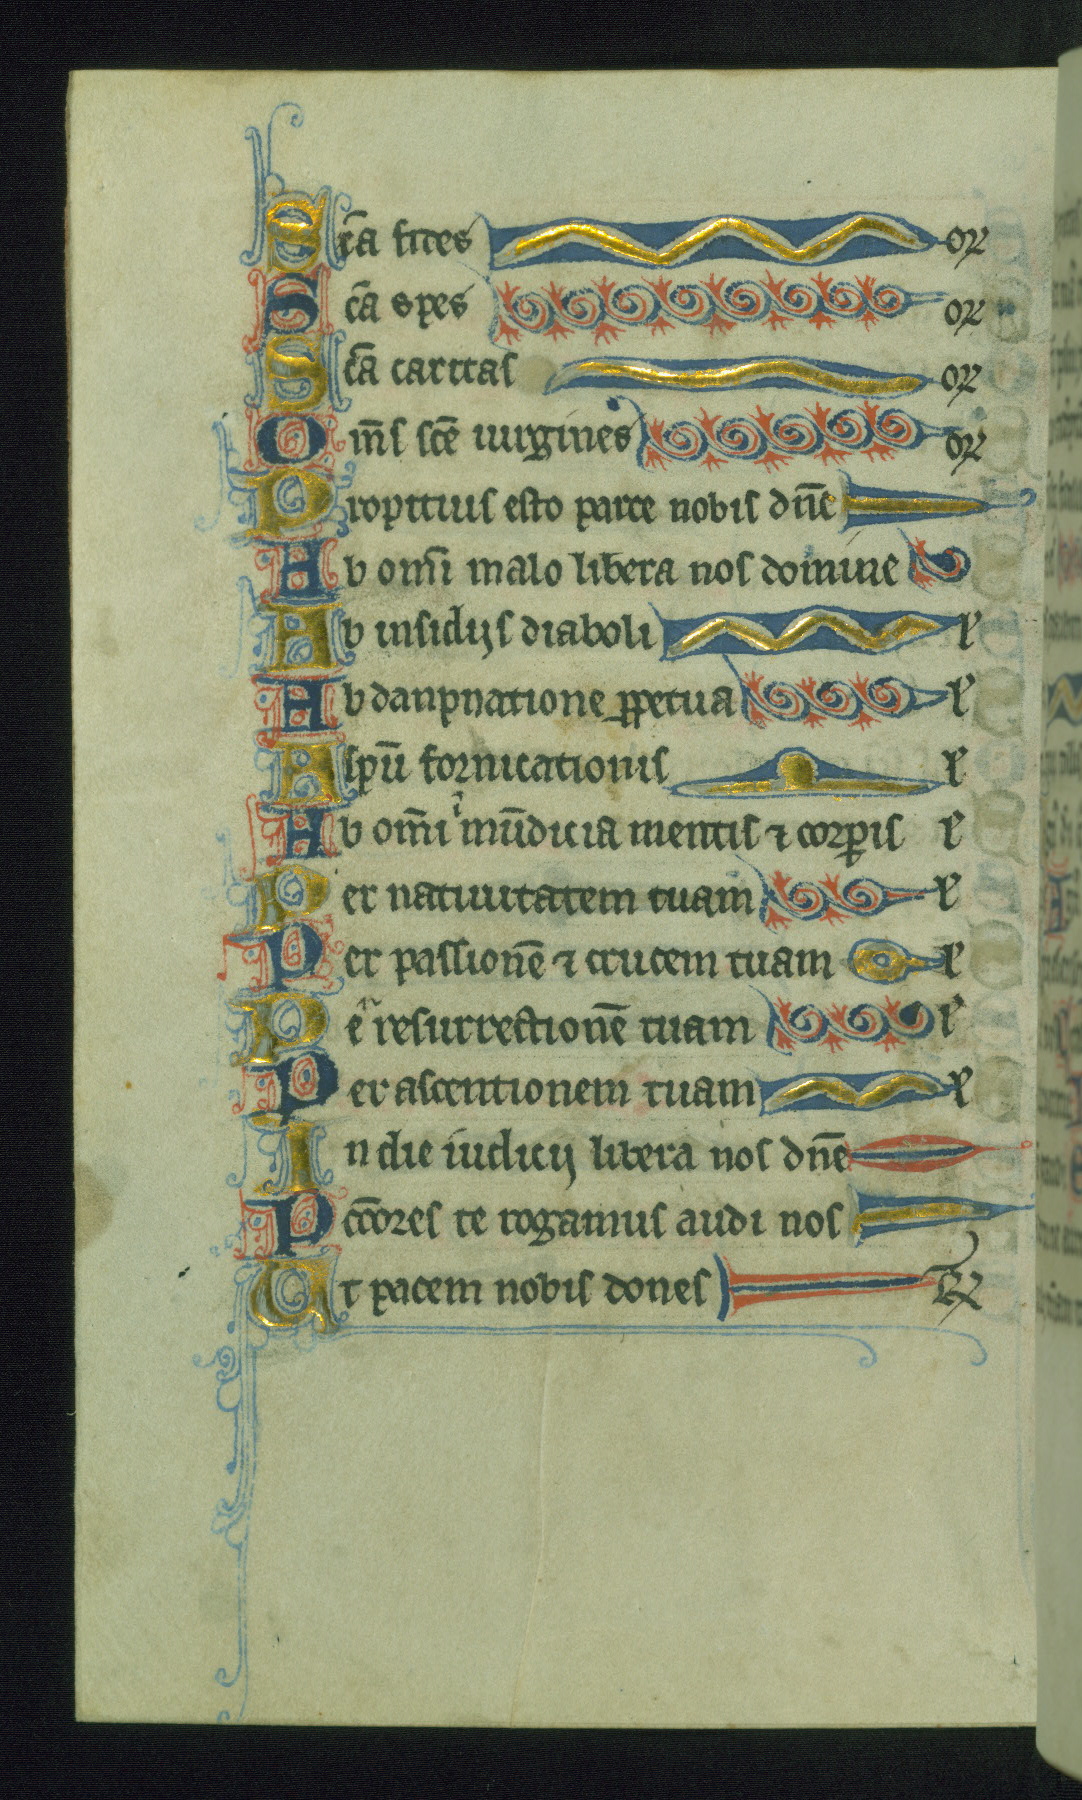 Sc̄a fites or
Sc̄a spes or
Sc̄a caritas or
Om̄s sc̄e uirgines or
Propitius esto parce nobis dn̄e
Ab om̄i malo libera nos domine
Ab insidijs diaboli ł
Ab danpnatione ꝑpetua ł
A spū fornicationis ł
Ab om̄i imūdicia mentis ⁊ corꝑis ł
Per natiuitatem tuam ł
Per passionē ⁊ crucem tuam ł
Per resurrectionē tuam ł
Per ascentionem tuam ł
In die iudicij libera nos dn̄e
Pcc̄ores te rogamus audi nos
Ut pacem nobis dones